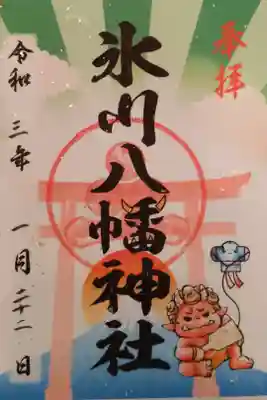 奉拝
氷川八幡神社
令和三年 一月二十二日